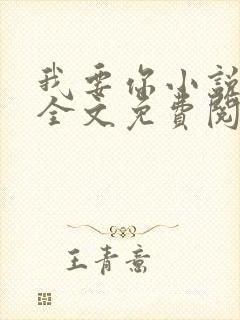 我要你小說
全文免費閱
王青意